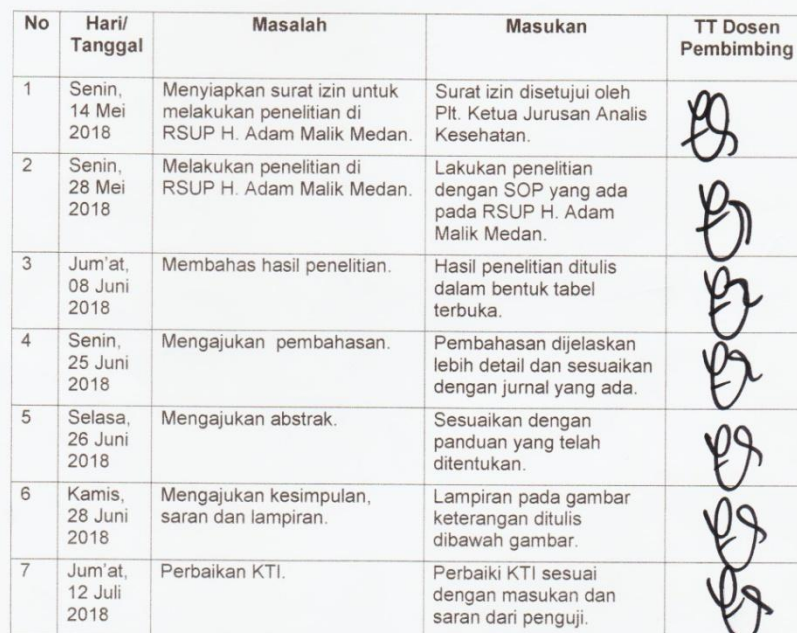 No Hari/ Tanggal Masalah Masukan TT Dosen Pembimbing
1 Senin, 14 Mei 2018 Menyiapkan surat izin untuk melakukan penelitian di RSUP H. Adam Malik Medan. Surat izin disetujui oleh Plt. Ketua Jurusan Analis Kesehatan.
2 Senin, 28 Mei 2018 Melakukan penelitian di RSUP H. Adam Malik Medan. Lakukan penelitian dengan SOP yang ada pada RSUP H. Adam Malik Medan.
3 Jum'at, 08 Juni 2018 Membahas hasil penelitian. Hasil penelitian ditulis dalam bentuk tabel terbuka.
4 Senin, 25 Juni 2018 Mengajukan pembahasan. Pembahasan dijelaskan lebih detail dan sesuaikan dengan jurnal yang ada.
5 Selasa, 26 Juni 2018 Mengajukan abstrak. Sesuaikan dengan panduan yang telah ditentukan.
6 Kamis, 28 Juni 2018 Mengajukan kesimpulan, saran dan lampiran. Lampiran pada gambar keterangan ditulis dibawah gambar.
7 Jum'at, 12 Juli 2018 Perbaikan KTI. Perbaiki KTI sesuai dengan masukan dan saran dari penguji.